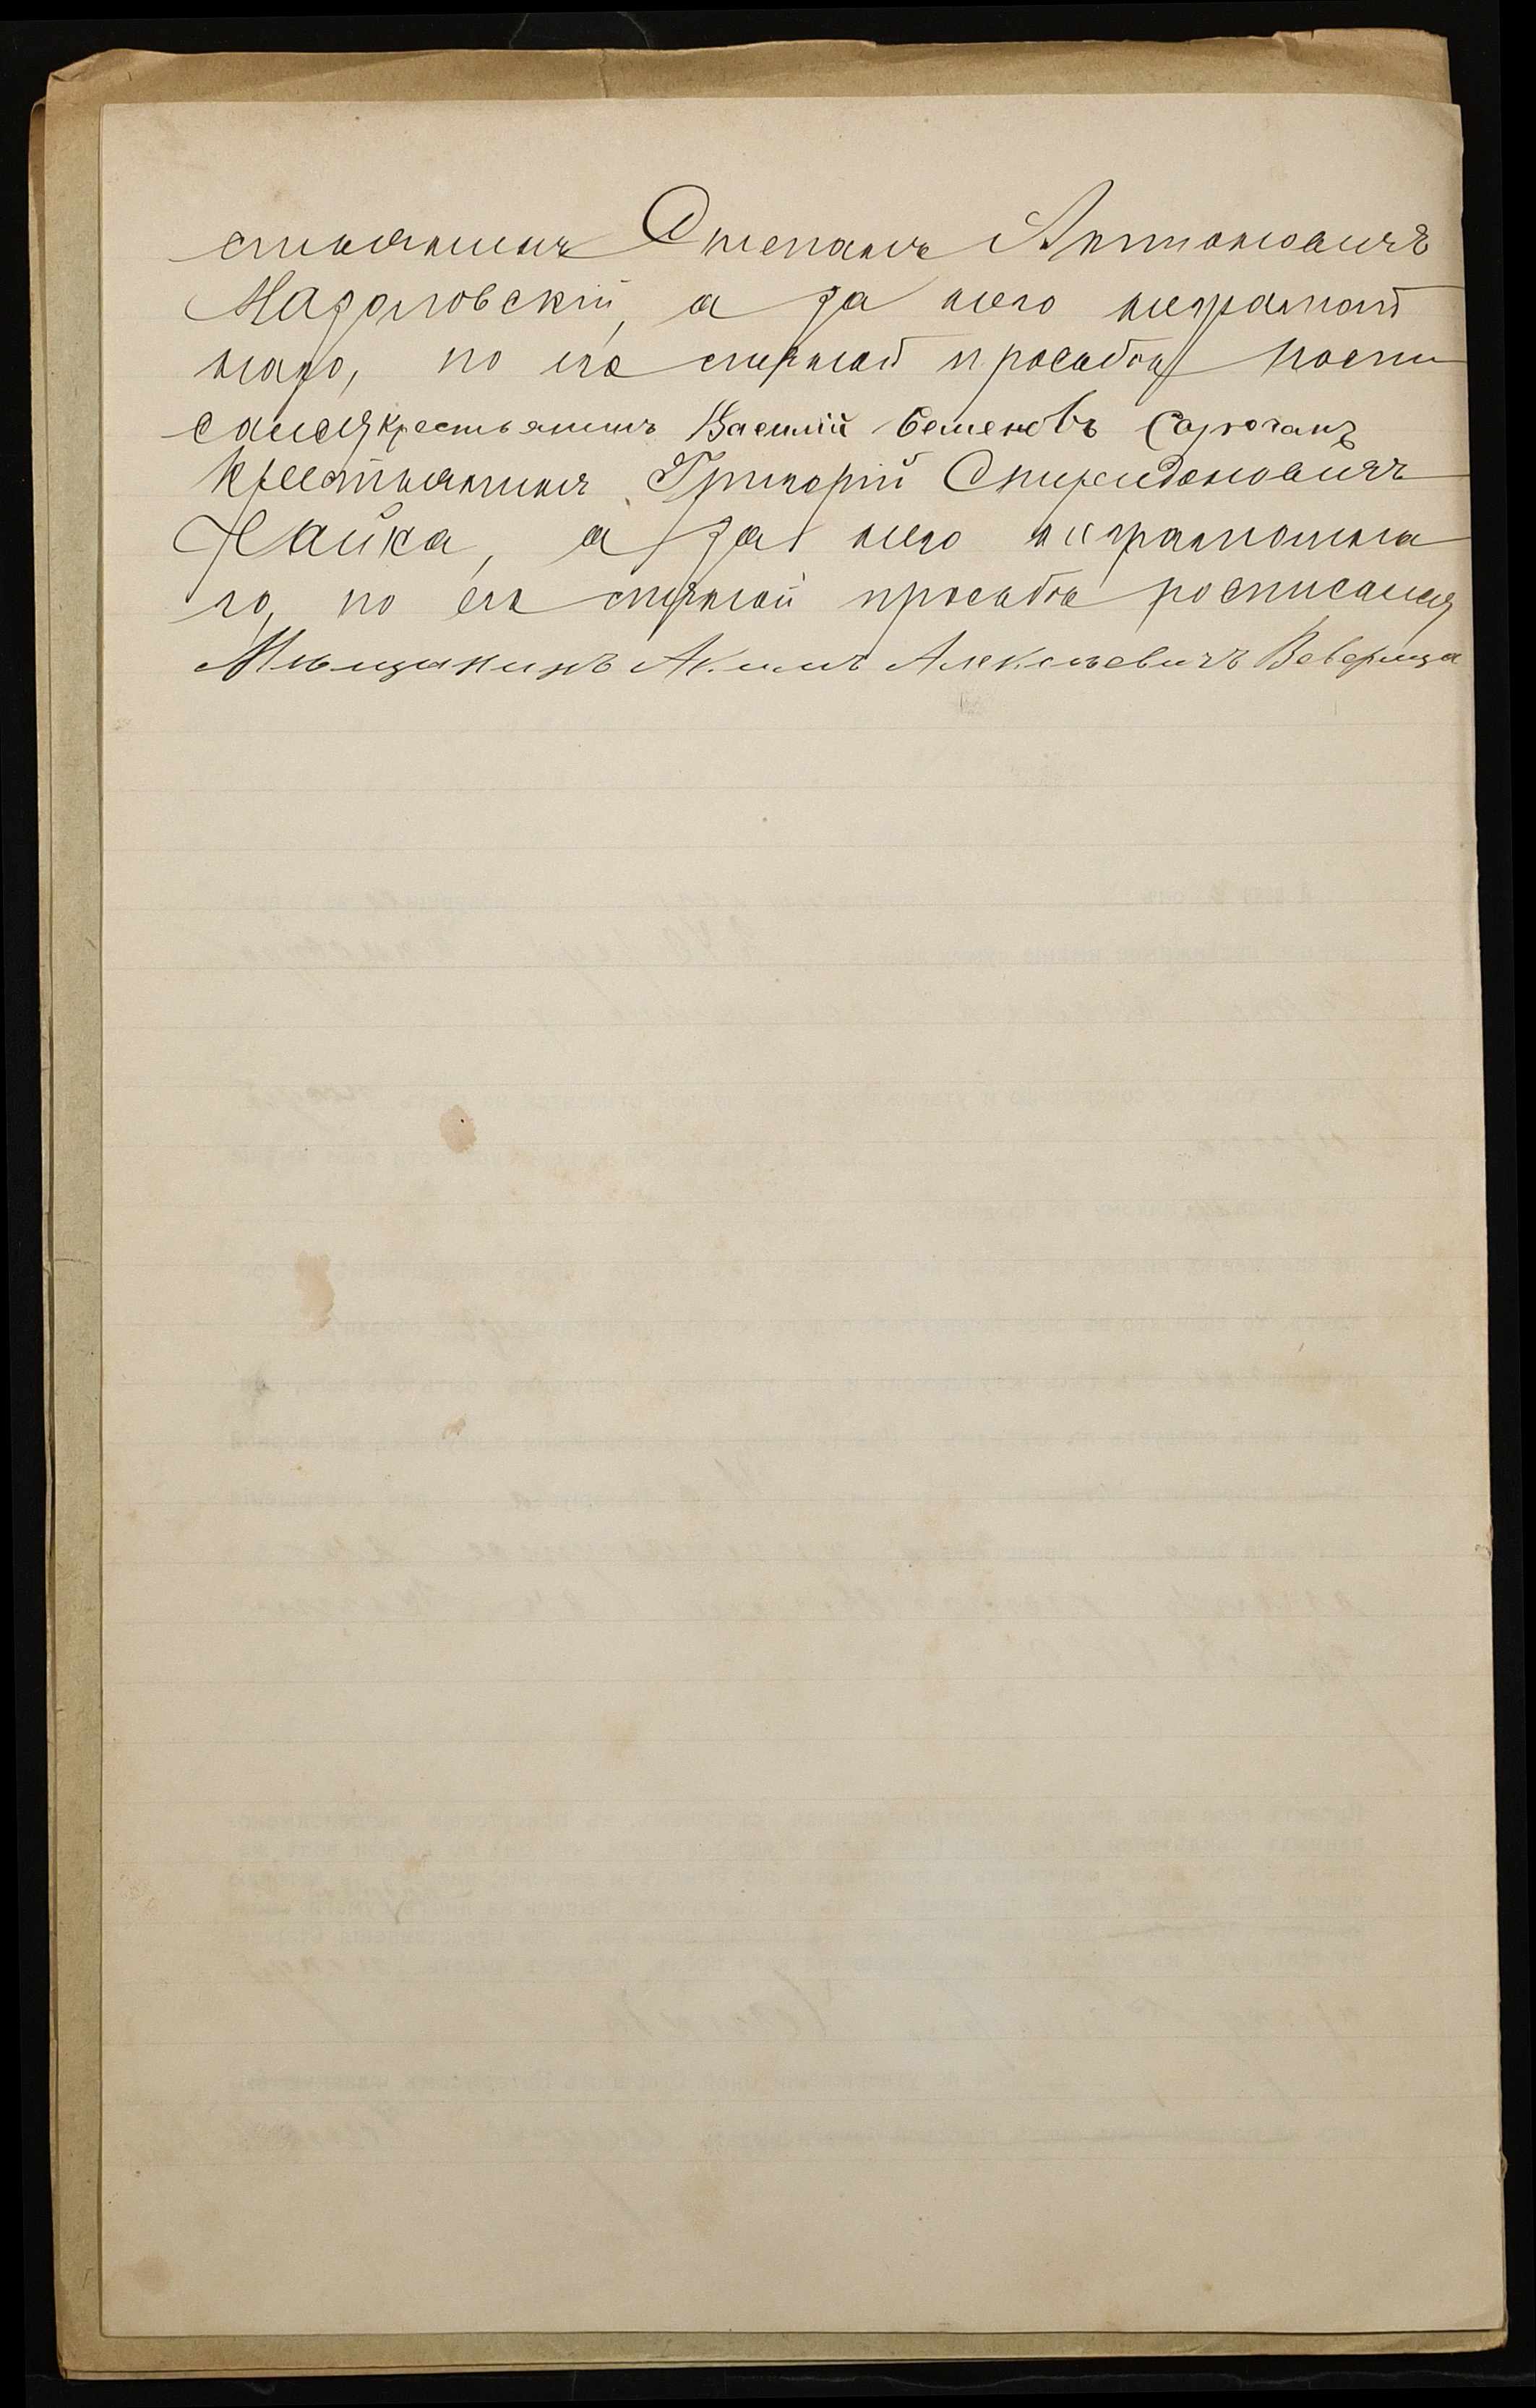 стьянинъ Степанъ Антоновичъ
Мазоловскій, а за него неграмот
наго, по его личной просьбѣ роспи
сался крестьянинъ Василій Семеновъ
Крестьянинъ Григорій Спиридоновичъ
Чайка, а за него неграмотна
го, по его личной просьбѣ росписался
Мѣщанинъ Акимъ Алексѣевичъ Веверица